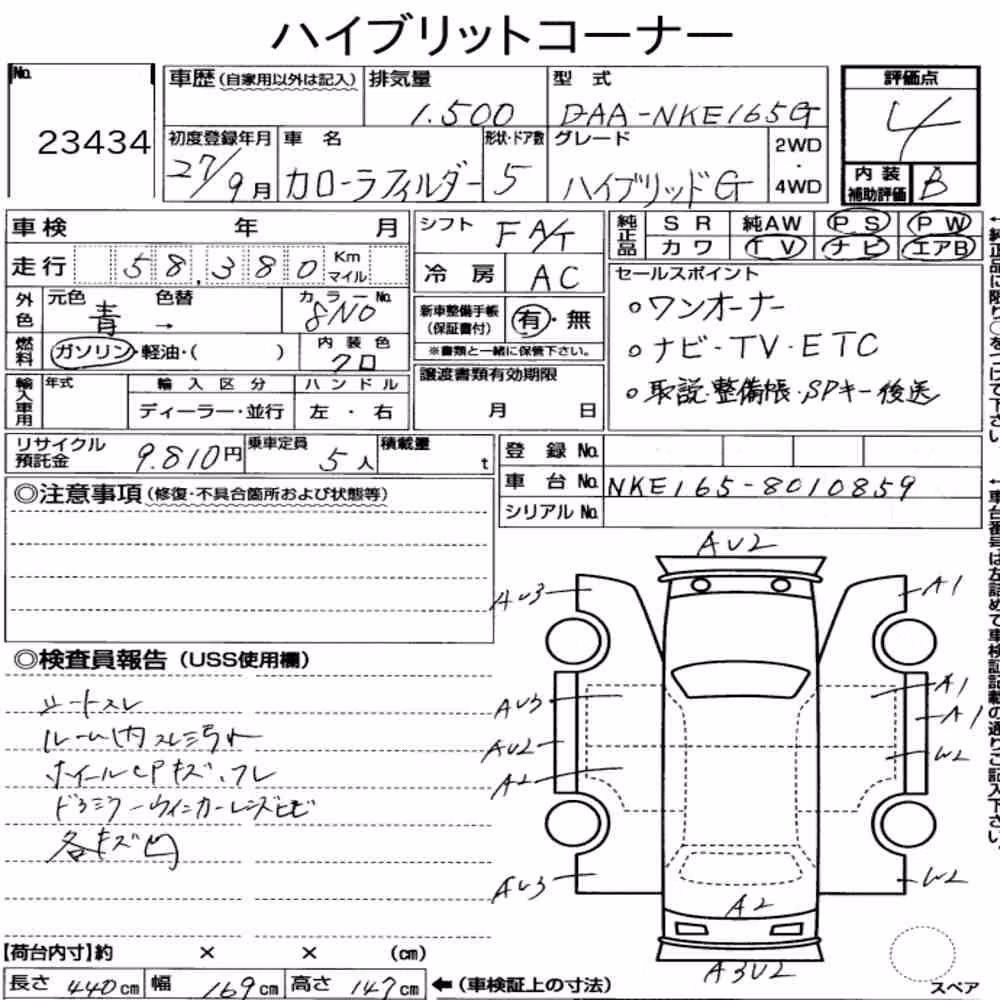 ハイブリットコーナー
No.
23434
車歴(自家用以外は記入)
排気量
1.500
型式
DAA-NKE165G
評価点
4
初度登録年月
27/9月
車名
カローラフィルダー
形状・ドア数
5
グレード
ハイブリッドG
2WD
・
4WD
内装
補助評価
B
車検 年 月
シフト
F A/T
純正品
SR 純AW PS PW
カワ TV ナビ エアB
走行
58,380
Km
マイル
冷房
AC
セールスポイント
。ワンオーナー
。ナビ・TV・ETC
。取説・整備帳・SPキー後送
外色
元色 色替
青 →
カラーNo.
8N0
新車整備手帳
(保証書付)
有・無
※書類と一緒に保管下さい。
燃料
ガソリン・軽油・( )
内装色
クロ
譲渡書類有効期限
月 日
輸入車用
年式
輸入区分
ハンドル
ディーラー・並行
左・右
リサイクル
預託金
9.810円
乗車定員
5人
積載量
t
登録No.
車台No.
NKE165-8010859
シリアルNo.
◎注意事項(修復・不具合箇所および状態等)
◎検査員報告(USS使用欄)
シートスレ
ルーム内スレ ヨゴレ
ホイールCPキズ・フレ
ドラミラーウィンカーレンズヒビ
各キズ凹
AU2
AU3
A1
AU3
A1
A1
AU2
W2
A2
AU3
W2
A2
A3U2
【荷台内寸】約 × × (cm)
長さ 440cm 幅 169cm 高さ 147cm
←(車検証上の寸法)
スペア
←純正品に限り○をつけて下さい。
←車台番号は左詰めで車検証記載の通りご記入下さい。